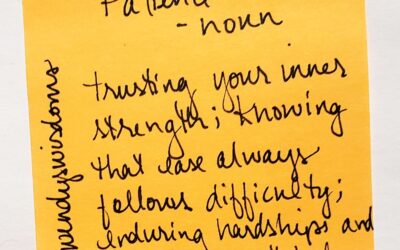 - noun
trusting your inner
strength; knowing
that ease always
follows difficulty;
enduring hardships and
wendyswisdoms